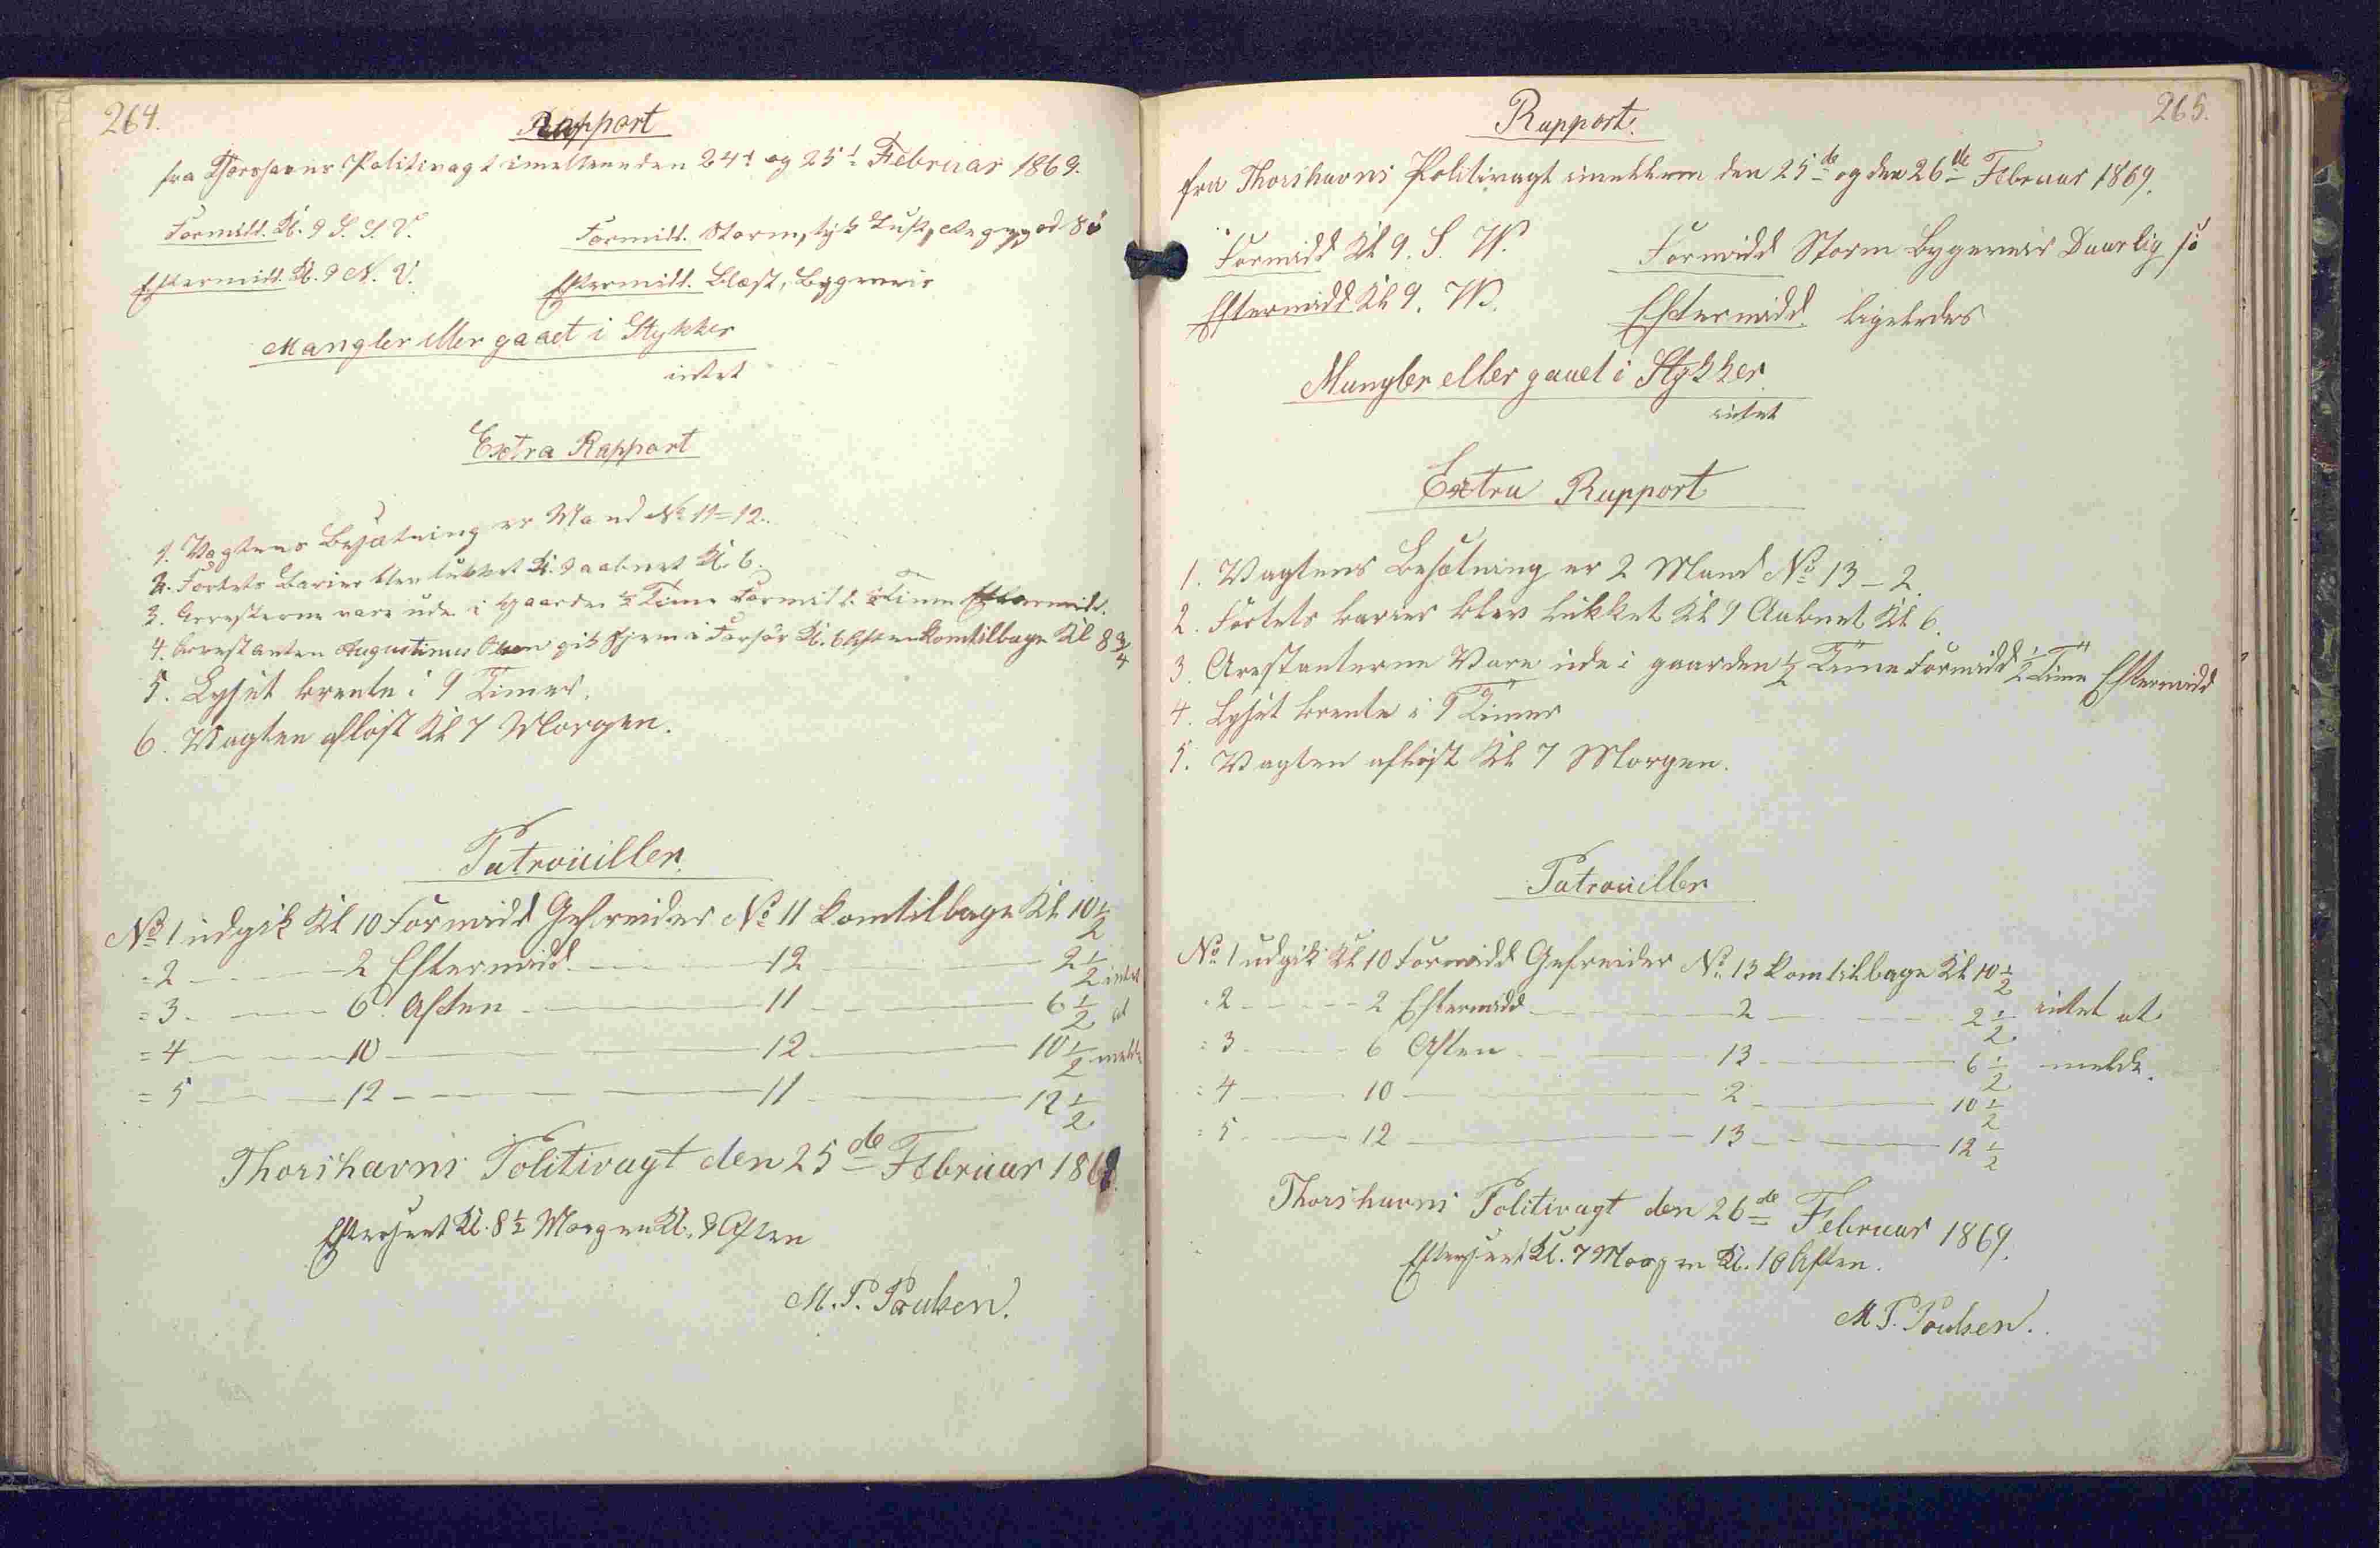 264.
Rapport
fra Thorshavns Politivagt imellem den 24d og 25d Februar 1869.
Formidd. Kl. 9 S. S. V.
Formidd. Storm, tyk Luft,
Eftermidd. Kl. 9 N. V.
Eftermidd. Blæst, Bygeveir
Mangler eller gaaet i Stykker
intet
Extra Rapport
1. Vagtens Besætning er Mand No 11=12.
2. Fortets Barier blev lukket Kl. 9 aabnet Kl. 6.
3. Arresterne vare ude i Gaarden ½ Time Formidd. ½ Time Eftermidd.
4. Arrestanten Augustinus Olsen gik Hjem i Forhør Kl. 6 Aften komtilbage Kl 8 3/4
5. Lyset brente i 9 Timer.
6. Vagten afløst Kl 7 Morgen.
Patrouiller
No 1 udgik Kl 10 Formidd Gefreider No 11 komtilbage Kl 10½
=2 — 2 Eftermidd. — 12 — 2½ intet
=3. — 6 Aften — 11 — 6½ at
=4 — 10 — 12 — 10½ melde
=5 — 12 — 11 — 12½
Thorshavns Politivagt den 25de Februar 1869.
Efterseet Kl. 8½ Morgen Kl. 9 Aften
M. P. Poulsen.
265.
Rapport.
fra Thorshavns Politivagt imellem den 25de og den 26de Februar 1869.
Formidd Kl 9. S. W.
Formidd Storm Bygeveir Daarlig sö
Eftermidd Kl 9. W.
Eftermidd. ligeledes
Mangler eller gaaet i Stykker.
intet
Extra Rapport
1. Vagtens Besætning er 2 Mand No 13 - 2.
2. Fortets barier blev lukket Kl 9 Aabnet Kl 6.
3. Arestanterne Vare ude i gaarden ½ Time Formidd ½ Time Eftermidd
4. Lyset brente i 9 Timer
5. Vagten afløst Kl 7 Morgen.
Patrouiller
No 1 udgik Kl 10 Formidd Gefreider No 13 komtilbage Kl 10½
=2 — 2 Eftermidd — 2 — 2½ intet at
=3 — 6 Aften — 13 — 6½ melde.
=4 — 10 — 2 — 10½
=5 — 12 — 13 — 12½
Thorshavns Politivagt den 26de Februar 1869.
Efterseet Kl. 7 Morgen Kl. 10 Aften.
M P. Poulsen.